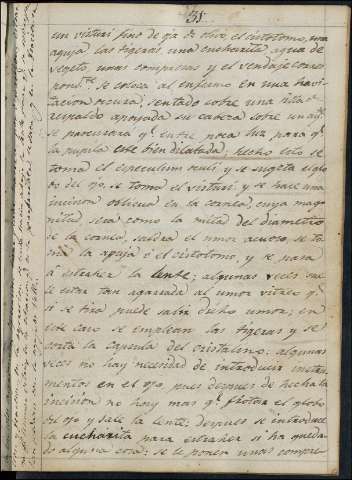 31.
un visturi fino de oja de oliva el cistotomo, una
aguja las tigeras una cucharita agua de
vegeto unas compresas y el vendaje corres
pond.te se coloca al enfermo en una havi-
tacion oscura, sentado sobre una silla
respaldo apoyada su cabeza sobre un
se procurará q.e entre poca luz para q.e
la pupila este bien dilatada; hecho esto se
toma el especulum oculi, y se sugeta el glo
vo del ojo, se toma el visturi y se hace una
incision oblicua en la cornea, cuya mag
nitud, será como la mitad del diametro
de la cornea, saldrá el umor acuoso, se to
ma la aguja ó el cistotomo, y se pasa
a estraher la lente; algunas veces sue
le estar tan agarrada al umor vitreo q.e
si se tira, puede salir dicho umor; en
este caso se emplean las tigeras y se
corta la capsula del cristalino. algunas
veces no hay necesidad de introducir instru
mentos en el ojo, pues despues de hecha la
incision no hay mas q.e frotar el globo
del ojo y sale la lente: despues se introduce
la cucharita para estraher si ha queda
do alguna cosa; se le ponen unas compre-